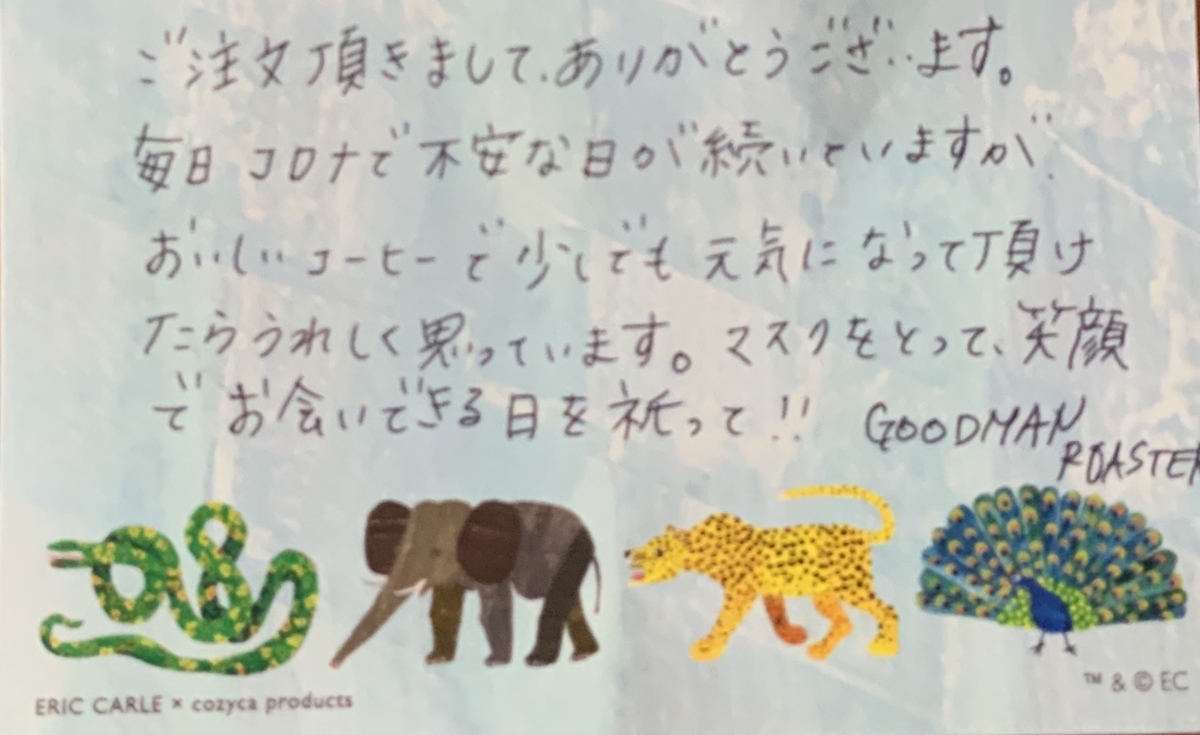 ご注文頂きまして、ありがとうございます。
毎日コロナで不安な日が続いていますが、
おいしいコーヒーで少しでも元気になって頂け
たらうれしく思っています。マスクをとって、笑顔
でお会いできる日を祈って!! GOODMAN
ROASTER
ERIC CARLE × cozyca products
™ & © EC